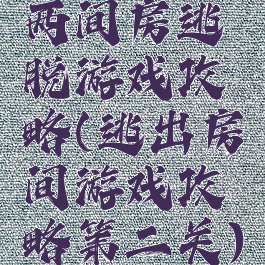 两间房逃
脱游戏攻
略(逃出房
间游戏攻
略第二关)